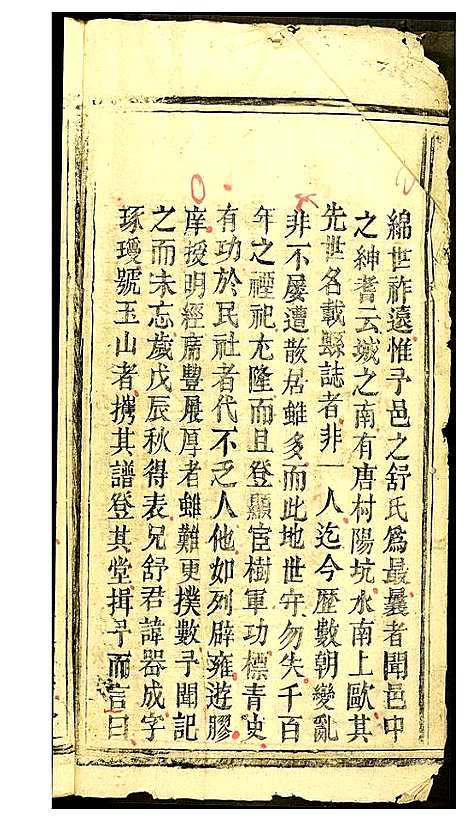 綿世祚遠惟予邑之舒氏爲最曩者聞邑中
之紳耆云城之南有唐村陽坑水南上歐其
先世名載縣誌者非一人迄今歷數朝變亂
非不屢遭散居雖多而此地世守勿失千百
年之禋祀尤隆而且登顯宦樹軍功標青史
有功於民社者代不乏人他如列辟雍遊膠
庠授明經席豐履厚者雖難更撲數予聞記
之而未忘歲戊辰秋得表兄舒君諱器成字
琢瓊號玉山者攜其譜登其堂揖予而言曰